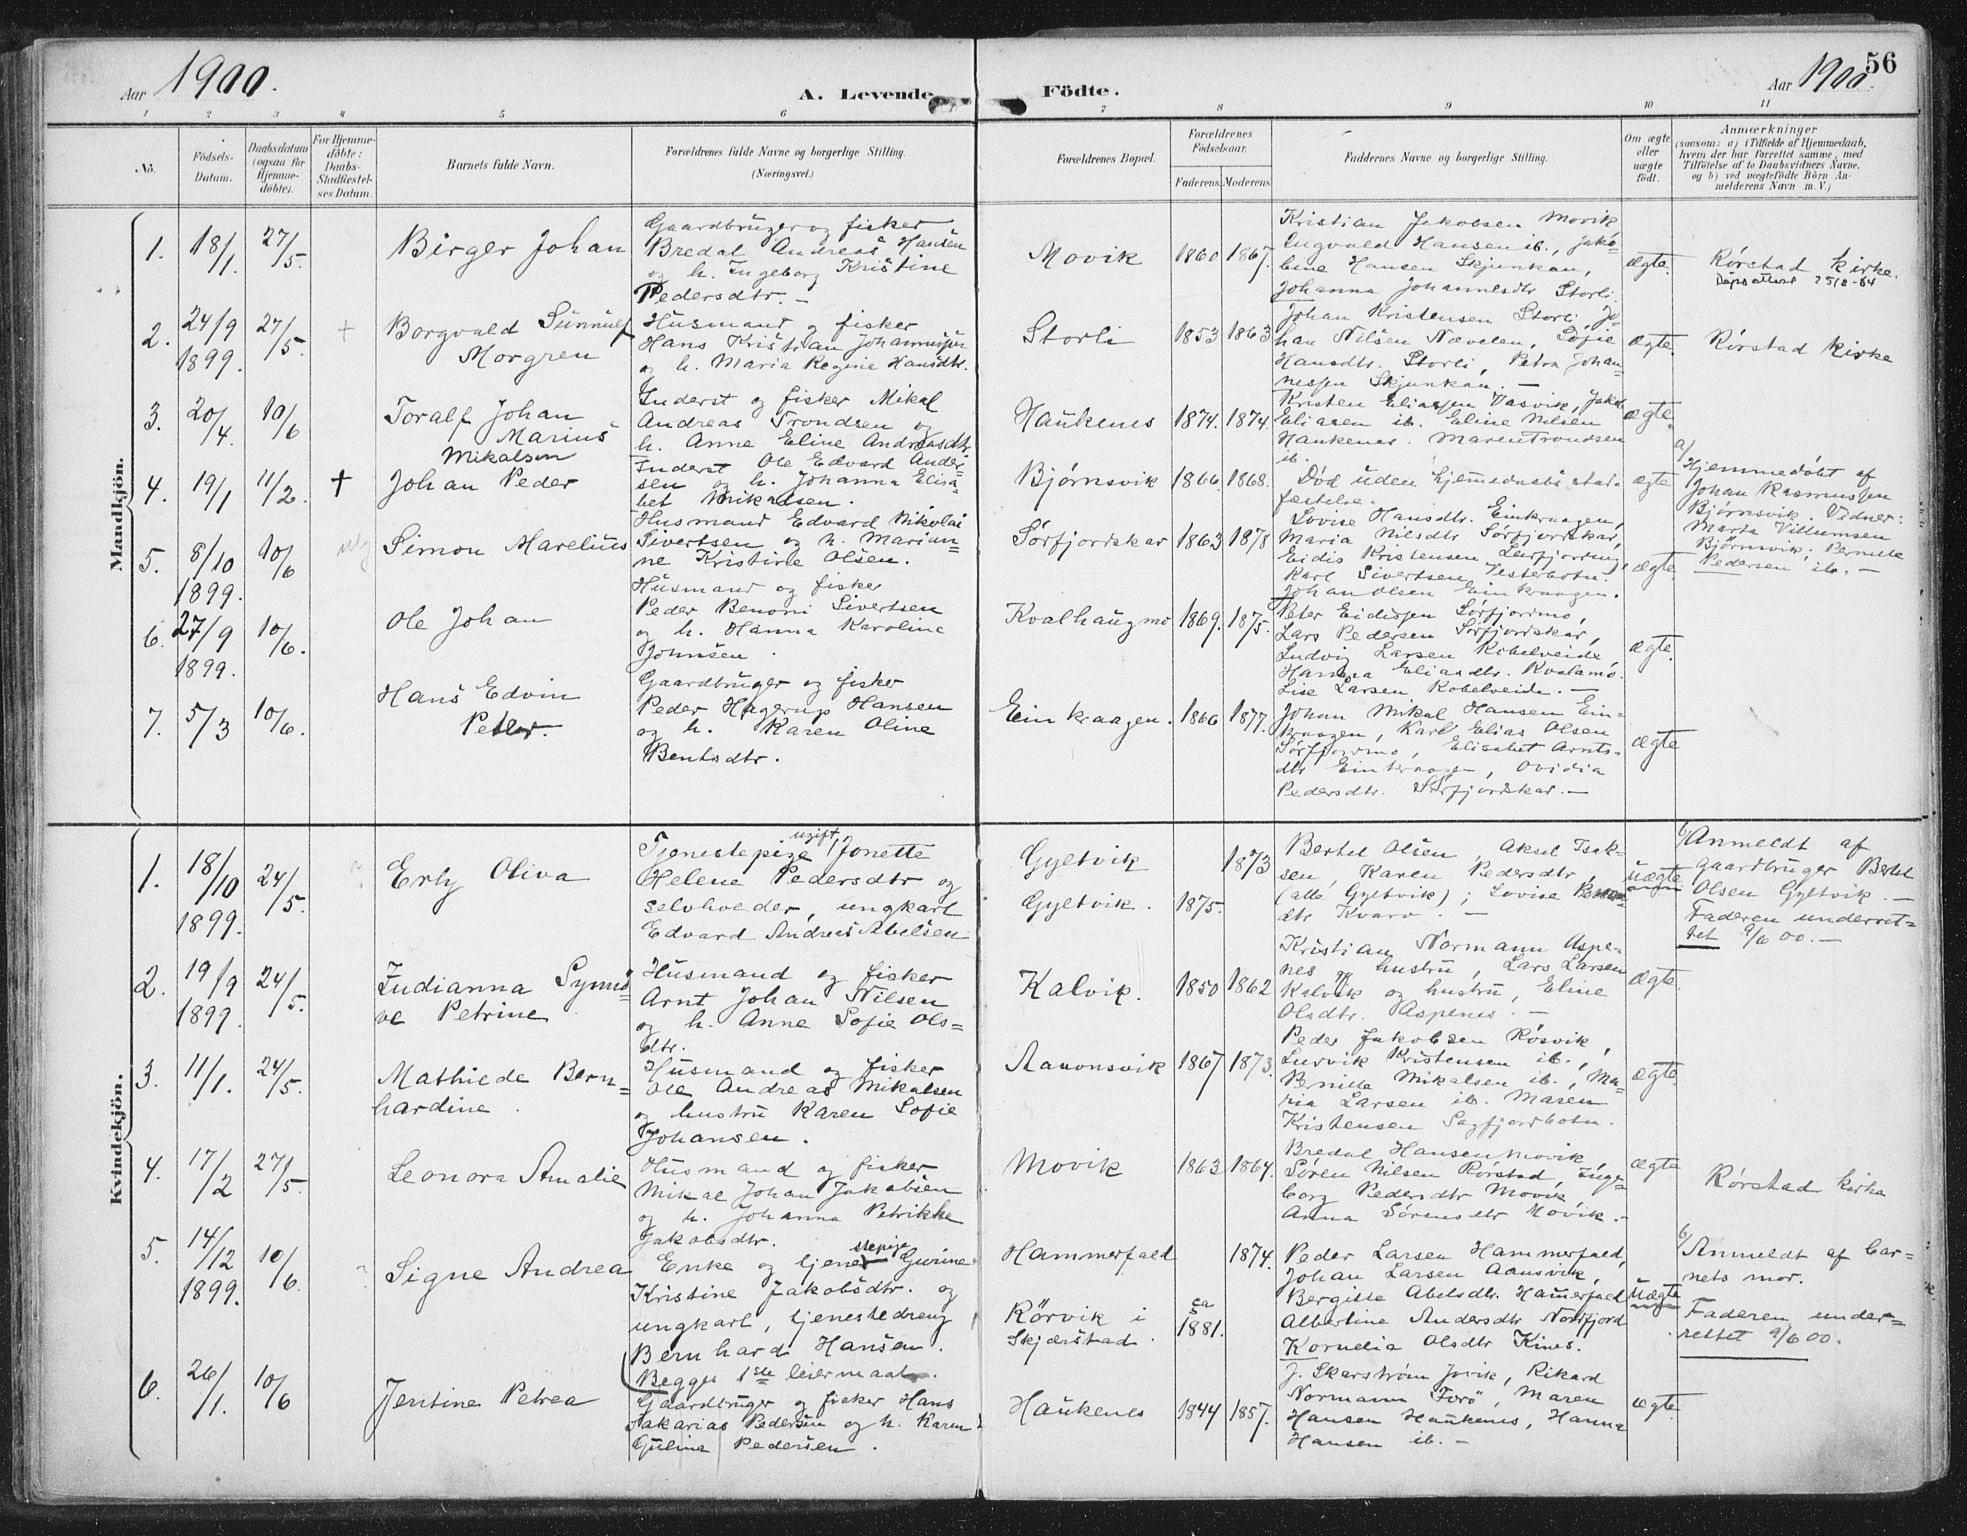 56
Aar 1900.
A. Levende Födte.
Aar 1900.
1 2 3 4 5 6 7 8 9 10 11
No.
Födsels-Datum.
Daabsdatum (ogsaa for Hjemmedöbte).
For Hjemmedöbte: Daabs-Stadfæstelses Datum.
Barnets fulde Navn.
Forældrenes fulde Navne og borgerlige Stilling.
(Næringsvei.)
Forældrenes Bopæl.
Forældrenes Födselsaar.
Faderens. Moderens.
Faddernes Navne og borgerlige Stilling.
Om ægte eller uægte födt.
Anmærkninger
(saasom: a) i Tilfælde af Hjemmedaab, hvem der har forrettet samme, med Tilföielse af to Daabsvidners Navne, og b) ved uægtefödte Börn Anmelderens Navn m. V.)
Mandkjön.
1. 18/1. 27/5. Birger Johan
Gaardbruger og fisker
Bredal Andreas Hansen
og h. Ingeborg Kristine
Pedersdtr. –
Movik 1860 1867.
Kristian Jakobsen Movik
Ingvald Hansen ib., Jako-
bine Hansen Skjunkan,
Johanna Johannesdtr Storli.
ægte.
Rørstad kirke.
Dåpsattest 25/8-64
2. 24/9 1899. 27/5. +
Borgvald Sunnulf
Morgren
Husmand og fisker
Hans Kristian Johannesen
og h. Maria Regine Hansdtr.
Storli 1853 1863
Johan Kristensen Storli, Jo-
han Nilsen Nævelen, Sofie
Hansdtr. Storli, Petra Johan-
nessen Skjunkan. –
ægte.
Rørstad kirke
3. 20/4. 10/6
Toralf Johan
Marius
Mikalsen
Inderst og fisker Mikal
Andreas Trondsen og
h. Anne Eline Andreasdtr.
Haukenes 1874. 1874.
Kristen Eliassen Vasvik,
Eliasen ib. Eline Nilsen
Haukenes. Maren Trondsen
ib.
ægte.
4. 19/1 11/2. + Johan Peder
Inderst Ole Edvard Ander-
sen og h. Johanna Elisa-
bet Mikalsen.
Bjørnsvik 1866 1868.
Død uden hjemmedaabs stad-
fæstelse.
ægte
a/
Hjemmedøbt af
Johan Rasmussen
Bjørnsvik. Vidner:
Marta Villumsen
Bjørnsvik; Pernille
Pedersen ib. –
5. 8/10 1899. 10/6 Simon Marelius
Husmand Edvard Nikolai
Sivertsen og h. Marian-
ne Kristine Olsen.
Sørfjordskar 1863 1878
Lovise Hansdtr. Einkraagen,
Maria Nilsdtr Sørfjordskar,
Eidis Kristensen
Karl Sivertsen Vesterbotn.
Johan Olsen Einkraagen.
ægte
6. 27/9 1899. 10/6. Ole Johan
Husmand og fisker
Peder Benoni Sivertsen
og h. Hanna Karoline
Johnsen.
Kvalhaugmo 1869. 1875.
Peter Eidissen Sørfjordmo,
Lars Pedersen Sørfjordskar,
Ludvig Larsen Kobelveide,
Hanna Eliasdtr. Kvalamo.
Lise Larsen Kobelveide. –
ægte.
7. 5/3 10/6. Hans Edvin
Peter.
Gaardbruger og fisker
Peder Hagerup Hansen
og h. Karen Oline
Bentsdtr.
Einkraagen. 1866 1877.
Johan Mikal Hansen Ein-
kraagen, Karl Elias Olsen
Sørfjordmo, Elisabet Arnts-
dtr Einkraagen, Ovidia
Pedersdtr. Sørfjordskar. –
ægte
Kvindekjön.
1. 18/10 1899. 24/5. Erly Oliva
ugift,
Tjenestepige Jonette
Helene Pedersdtr og
selvhveder, ungkarl
Edvard Andreas Abelsen
Gyltvik 1873
Gyltvik. 1875.
Bertel Olsen, Aksel Isak-
sen, Karen Pedersdtr,
(alle Gyltvik); Lovise
dtr Kvarv. –
uægte
b/ Anmeldt af
gaardbruger Bertel
Olsen Gyltvik. –
Faderen underret-
tet 9/6 00. –
2. 19/9 1899. 24/5.
Indianna Synnø-
ve Petrine
Husmand og fisker
Arnt Johan Nilsen
og h. Anne Sofie Ols-
dtr.
Kalvik. 1850 1862
Kristian Normann Aspe-
nes og hustru, Lars Larsen
Kalvik og hustru, Eline
Olsdtr. Aspenes. –
ægte.
3. 11/1. 24/5.
Mathilde Bern-
hardine.
Husmand og fisker
Ole Andreas Mikalsen
og hustru Karen Sofie
Johansen.
Aavonsvik 1867 1873.
Peder Jakobsen Røsvik,
Ludvik Kristensen ib.,
Pernille Mikalsen ib., Ma-
ria Larsen ib. Maren
Kristensen Sagfjordbotn.
ægte.
4. 17/2 27/5. Leonora Amalie
Husmand og fisker
Mikal Johan Jakobsen
og h. Johanna Petrikke
Jakobsdtr.
Movik 1863 1864.
Bredal Hansen Movik
Søren Nilsen Rørstad, Inge-
borg Pedersdtr Movik,
Anna Sørensdtr Movik. –
ægte
Rørstad kirke
5. 14/12 1899. 10/6. Signe Andrea
Enke og tjenestepige Gurine
Kristine Jakobsdtr. og
ungkarl, tjenestedreng
Bernhard Hansen.
Begges 1ste leiermaal.
Hammerfald 1874.
Rörvik i
Skjærstad. ca 1881.
Peder Larsen Hammerfald,
Johan Larsen Aansvik,
Bergitte Abelsdtr. Hammerfald
Albertine Andersdtr Nordfjord
Kornelia Olsdtr Kines.
uægte
b/ Anmeldt af bar-
nets mor.
Faderen under-
rettet 9/6 00.
6. 26/1. 10/6 Jentine Petrea
Gaardbruger og fisker Hans
Sakarias Pedersen og h. Karen
Guline Pedersen.
Haukenes 1844 1857.
J. Skarstrøm Jovik, Rikard
Normann Forö, Maren
Hansen Haukenes, Hanna
Hansen ib. –
ægte.